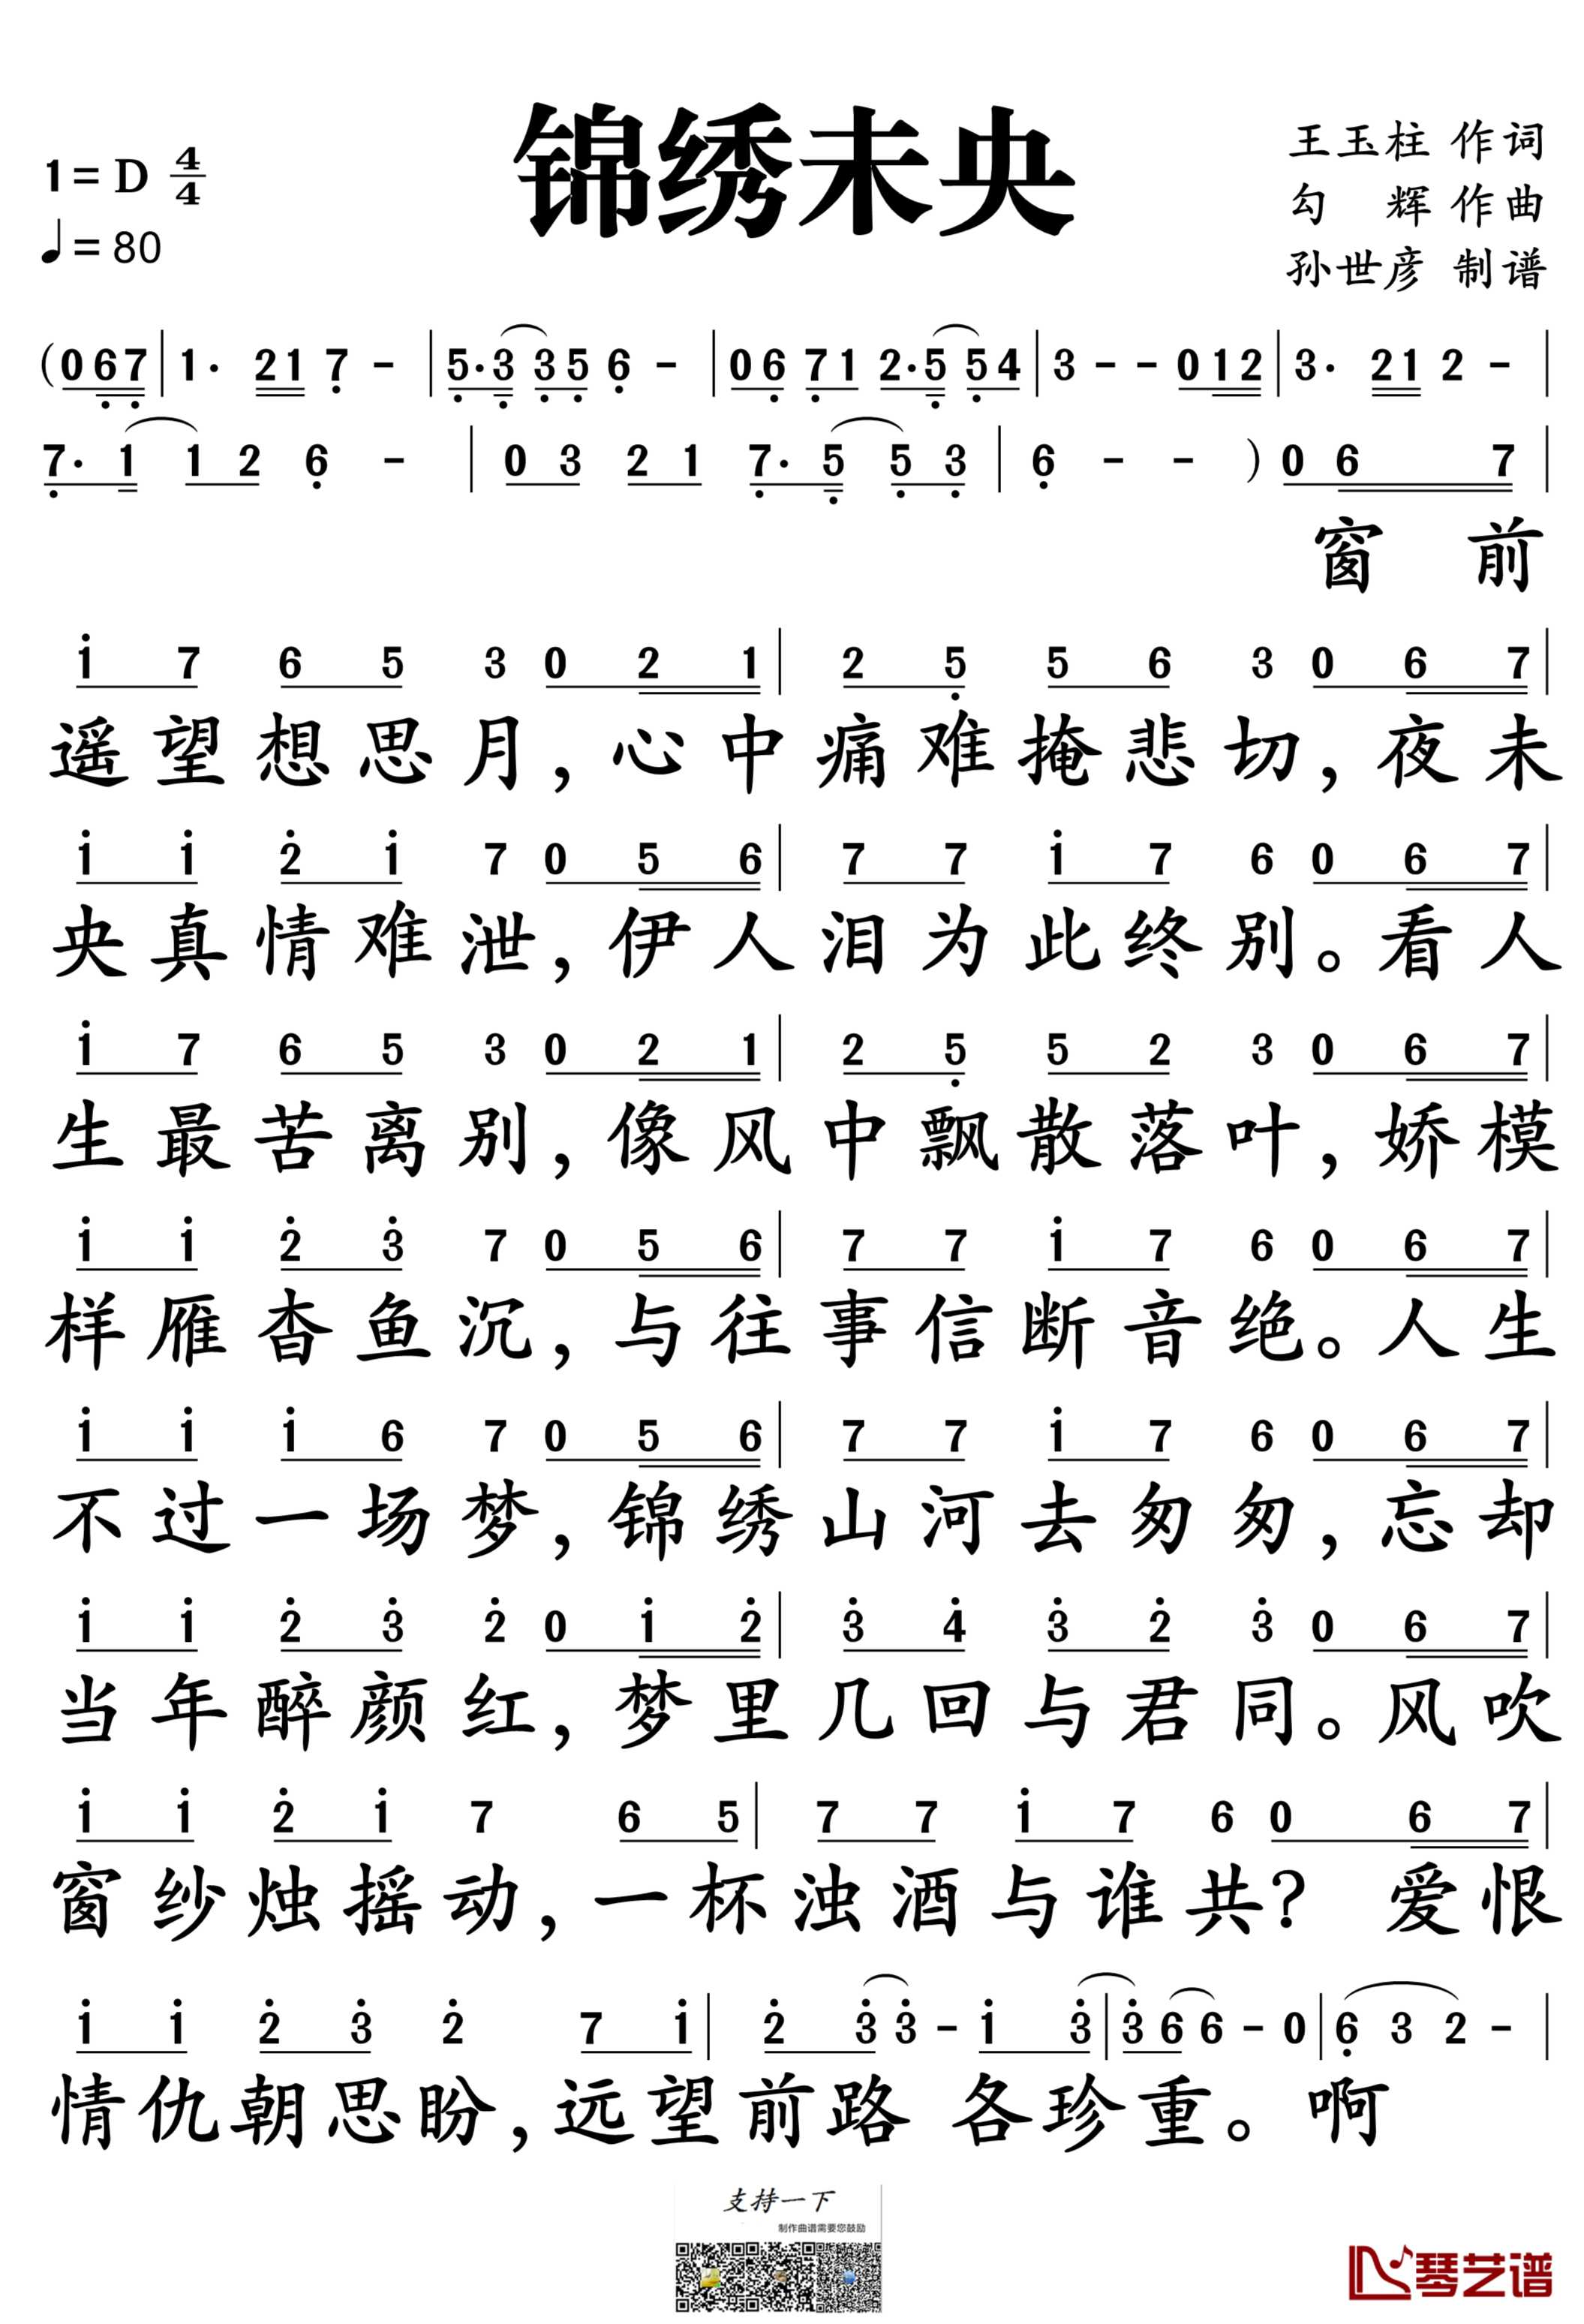 锦绣未央
1=D 4/4
♩=80
王玉柱 作词
勾 辉 作曲
孙世彦 制谱
(0 6̣ 7̣ | 1· 2 1 7̣ - | 5̣· 3̣ 3̣ 5̣ 6̣ - | 0 6̣ 7̣ 1 2· 5̣ 5̣ 4 | 3 - - 0 1 2 | 3· 2 1 2 - |
7̣· 1 1 2 6̣ - | 0 3 2 1 7̣· 5̣ 5̣ 3̣ | 6̣ - - ) 0 6 7 |
窗 前
1̇ 7 6 5 3 0 2 1 | 2 5̣ 5 6 3 0 6 7 |
遥望想思月,心中痛难掩悲切,夜未
1̇ 1̇ 2̇ 1̇ 7 0 5 6 | 7 7 1̇ 7 6 0 6 7 |
央真情难泄,伊人泪为此终别。看人
1̇ 7 6 5 3 0 2 1 | 2 5̣ 5 2 3 0 6 7 |
生最苦离别,像风中飘散落叶,娇模
1̇ 1̇ 2̇ 3̇ 7 0 5 6 | 7 7 1̇ 7 6 0 6 7 |
样雁杳鱼沉,与往事信断音绝。人生
1̇ 1̇ 1̇ 6 7 0 5 6 | 7 7 1̇ 7 6 0 6 7 |
不过一场梦,锦绣山河去匆匆,忘却
1̇ 1̇ 2̇ 3̇ 2̇ 0 1̇ 2̇ | 3̇ 4̇ 3̇ 2̇ 3̇ 0 6 7 |
当年醉颜红,梦里几回与君同。风吹
1̇ 1̇ 2̇ 1̇ 7 6 5 | 7 7 1̇ 7 6 0 6 7 |
窗纱烛摇动,一杯浊酒与谁共? 爱恨
1̇ 1̇ 2̇ 3̇ 2̇ 7 1̇ | 2̇ 3̇ 3̇ - 1̇ 3̇ | 3̇ 6 6 - 0 | 6̣ 3 2 - |
情仇朝思盼,远望前路 各珍重。啊
支持一下
制作曲谱需要您鼓励
琴艺谱